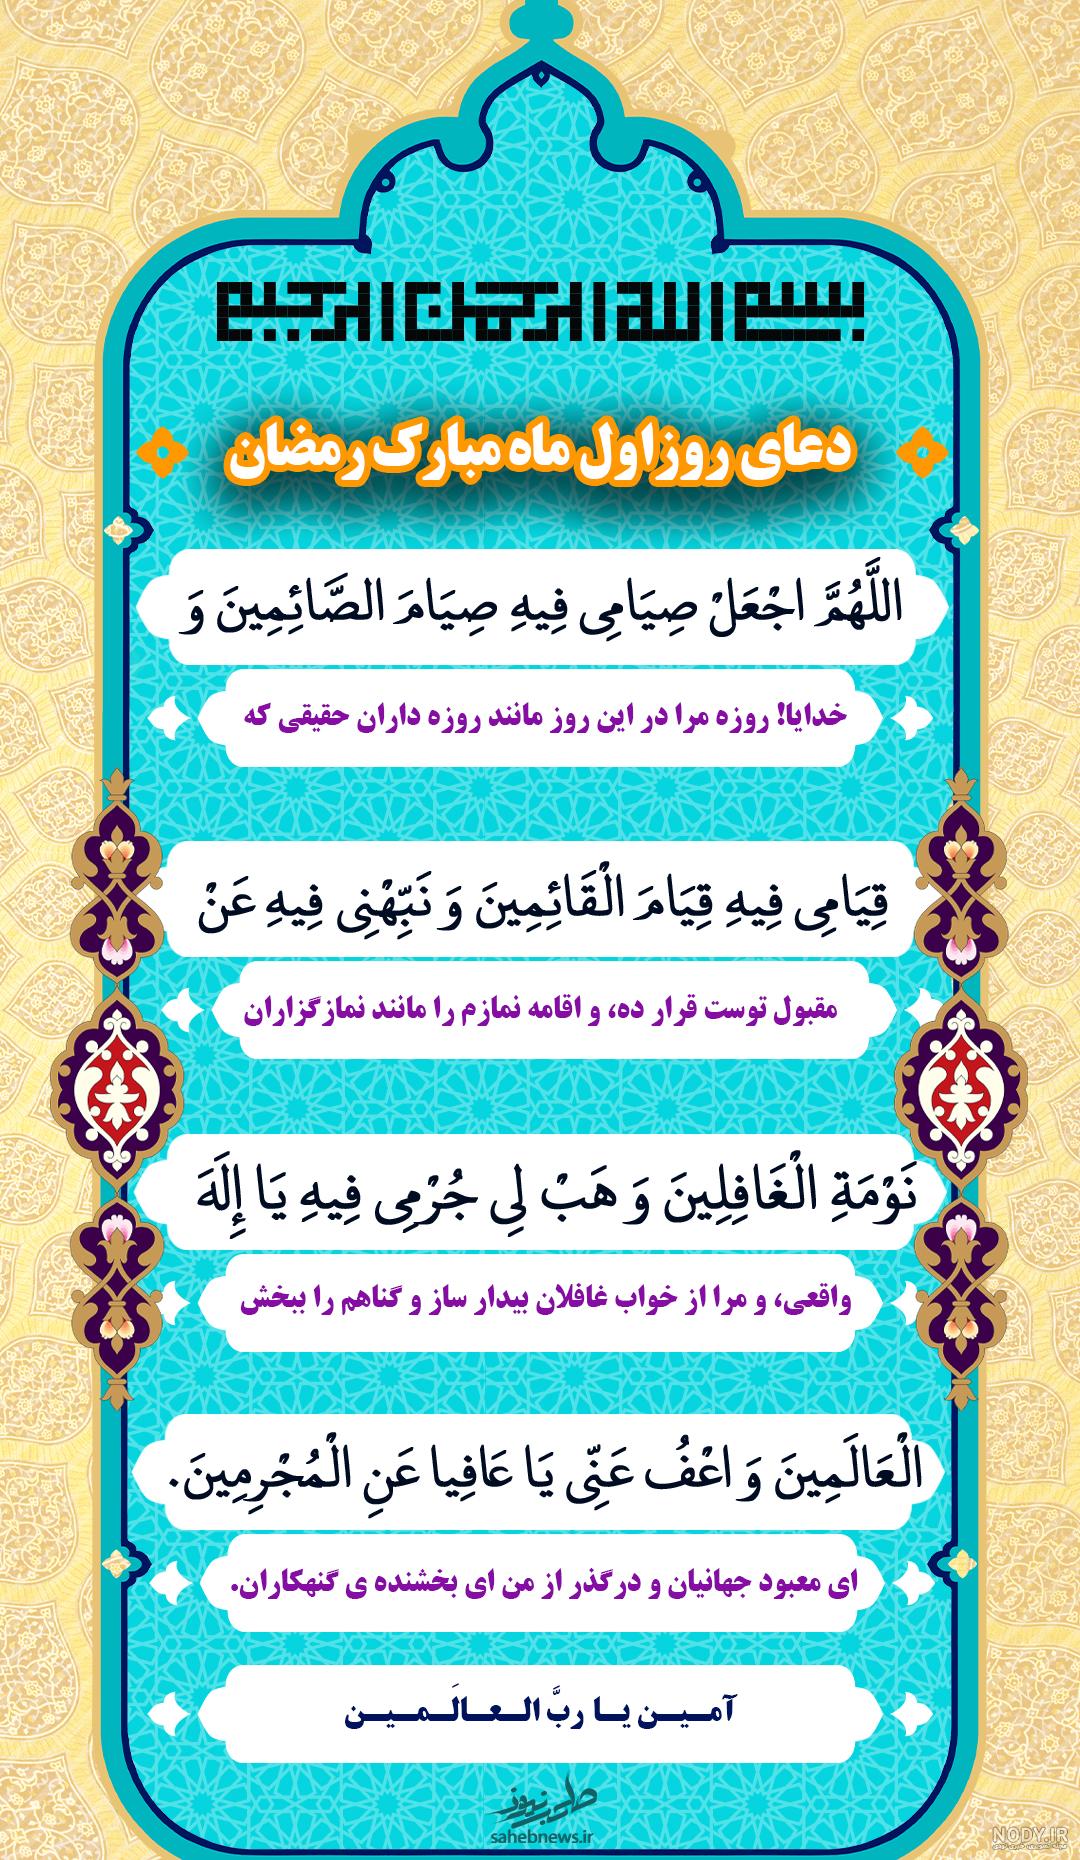 بسم الله الرحمن الرحیم
دعای روز اول ماه مبارک رمضان
اللَّهُمَّ اجْعَلْ صِیَامِی فِیهِ صِیَامَ الصَّائِمِینَ وَ
خدایا! روزه مرا در این روز مانند روزه داران حقیقی که
قِیَامِی فِیهِ قِیَامَ الْقَائِمِینَ وَ نَبِّهْنِی فِیهِ عَنْ
مقبول توست قرار ده، و اقامه نمازم را مانند نمازگزاران
نَوْمَةِ الْغَافِلِینَ وَ هَبْ لِی جُرْمِی فِیهِ یَا إِلَهَ
واقعی، و مرا از خواب غافلان بیدار ساز و گناهم را ببخش
الْعَالَمِینَ وَ اعْفُ عَنِّی یَا عَافِیا عَنِ الْمُجْرِمِینَ.
ای معبود جهانیان و درگذر از من ای بخشنده ی گنهکاران.
آمـیـن یـا ربَّ الـعـالَـمـیـن
صاحب نیوز
sahebnews.ir
NODY.IR